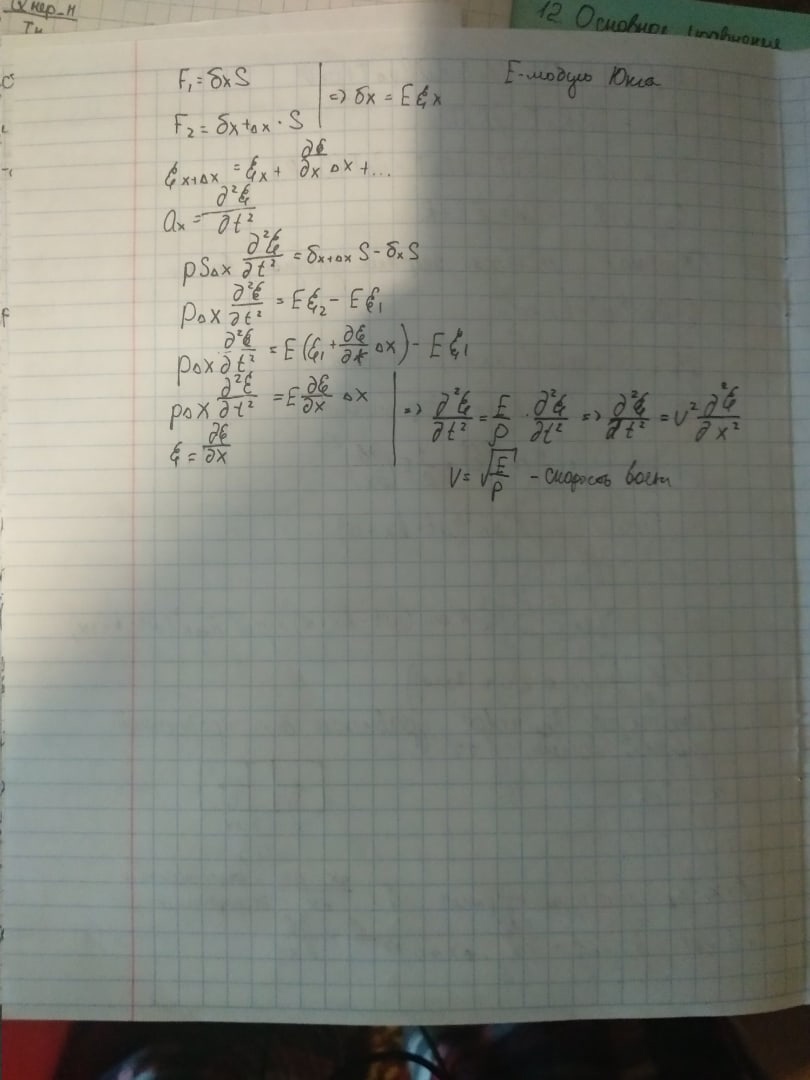 12 Основное уравнение
F₁ = δx S
F₂ = δx+Δx · S
=> δx = Eξx
E-модуль Юнга
ξx+Δx = ξx + ∂ξ/∂x Δx + ...
ax = ∂²ξ/∂t²
ρSΔx ∂²ξ/∂t² = δx+Δx S - δx S
ρΔx ∂²ξ/∂t² = Eξ₂ - Eξ₁
ρΔx ∂²ξ/∂t² = E(ξ₁ + ∂ξ/∂x Δx) - Eξ₁
ρΔx ∂²ξ/∂t² = E ∂ξ/∂x Δx
ξ = ∂ξ/∂x
=> ∂²ξ/∂t² = E/ρ · ∂²ξ/∂t² => ∂²ξ/∂t² = V² ∂²ξ/∂x²
V = √E/ρ - скорость волны